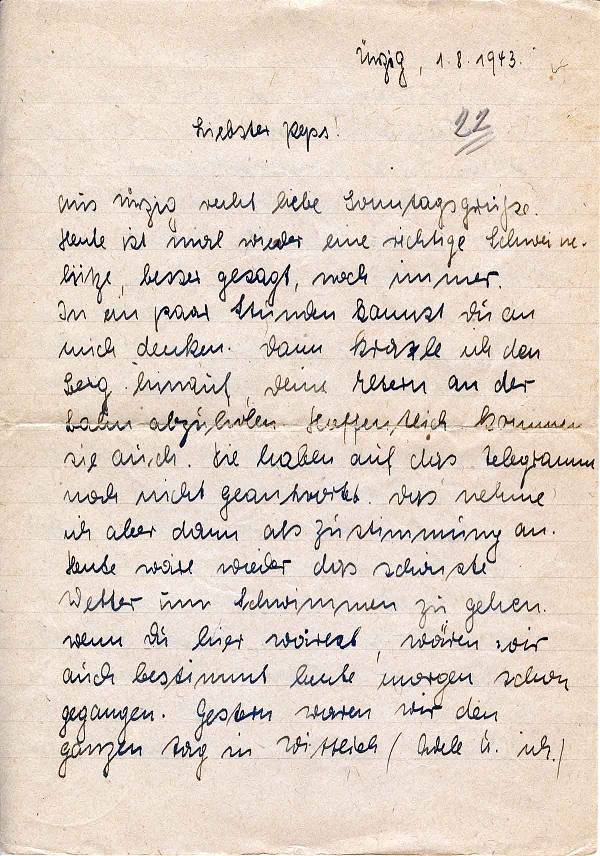 Ürzig, 1.8.1943.
Liebster Peps!
22
Aus Ürzig recht liebe Sonntagsgrüße.
Heute ist mal wieder eine richtige Schweine-
hitze, besser gesagt, noch immer.
In ein paar Stunden kannst Du an
mich denken. Dann kraxle ich den
Berg hinauf, Deine Eltern an der
Bahn abzuholen. Hoffentlich kommen
sie auch. Sie haben auf das Telegramm
noch nicht geantwortet. Das nehme
ich aber dann als Zustimmung an.
Heute wäre wieder das schönste
Wetter um Schwimmen zu gehen.
Wenn Du hier wärest, wären wir
auch bestimmt heute morgen schon
gegangen. Gestern waren wir den
ganzen Tag in Wittlich (Adele u. ich.)